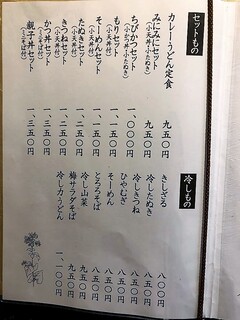 セットもの
カレーうどん定食 九五〇円
みにみにセット 九五〇円
(小天丼小たぬき)
ちびかつセット 一、〇〇〇円
もりセット 一、一五〇円
(小天丼付)
そーめんセット 一、一五〇円
(小天丼付)
たぬきセット 一、一五〇円
(小天丼付)
きつねセット 一、一五〇円
(小天丼付)
かつ丼セット 一、三五〇円
(ミニそば付)
親子丼セット 一、三五〇円
(ミニそば付)
冷しもの
きしざる 八〇〇円
冷したぬき 八五〇円
冷しきつね 八五〇円
ひやむぎ 八五〇円
そーめん 八五〇円
とろろそば 九五〇円
冷し山菜 九五〇円
梅サラダそば
冷し力うどん 一、一〇〇円